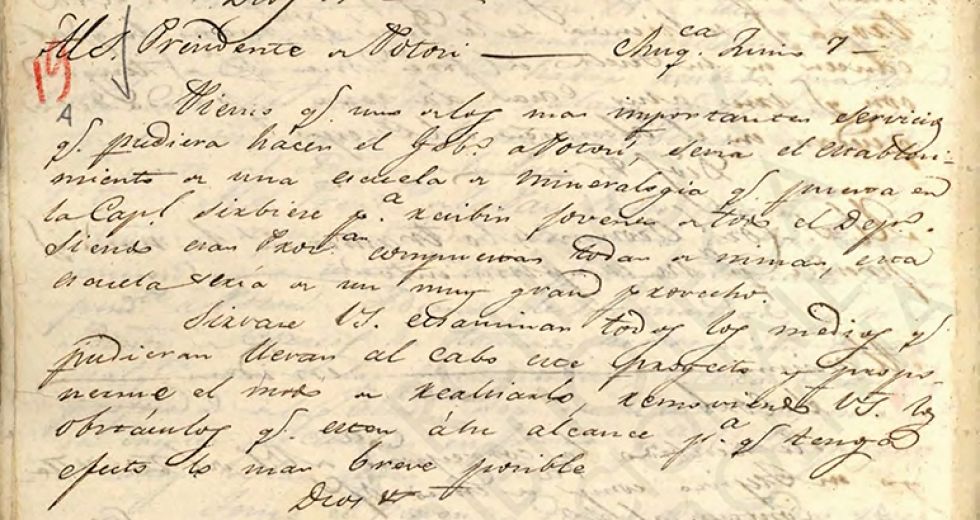 Al S. Presidente de Potosi —— Chuqca. Junio 7 —
15
A
Pienso qe. uno delos mas importantes servicios
qe. pudiera hacer el Gobo. a Potosi, seria el establesi-
miento de una escuela de Mineralogia qe. puesta en
la Capl. sirbiese pa. recibir jovenes de todo el Depo.
Siendo esas Provas. compuestas todas de minas, esta
escuela seria de un muy grand provecho.
Sirvase VS. ecsaminar todos los medios qe.
pudieran llevar al cabo este proyecto y propo-
nerme el modo de realisarlo, removiendo VS. los
obstáculos qe. esten á su alcance pa. qe. tenga
efecto lo mas breve posible
Dios &